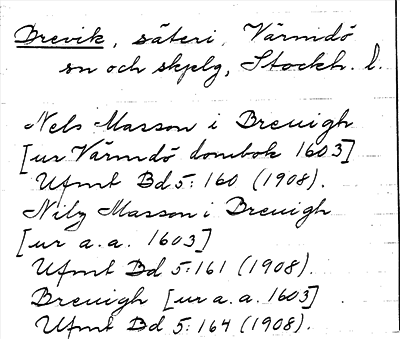 Brevik, säteri, Värmdö
sn och skjelg, Stockh. l.
Nels Masson i Breuigh
[ur Värmdö dombok 1603]
Ufmt Bd 5:160 (1908).
Nilz Masson i Breuigh
[ur a.a. 1603]
Ufmt Bd 5:161 (1908).
Breuigh [ur a.a. 1603]
Ufmt Bd 5:164 (1908).